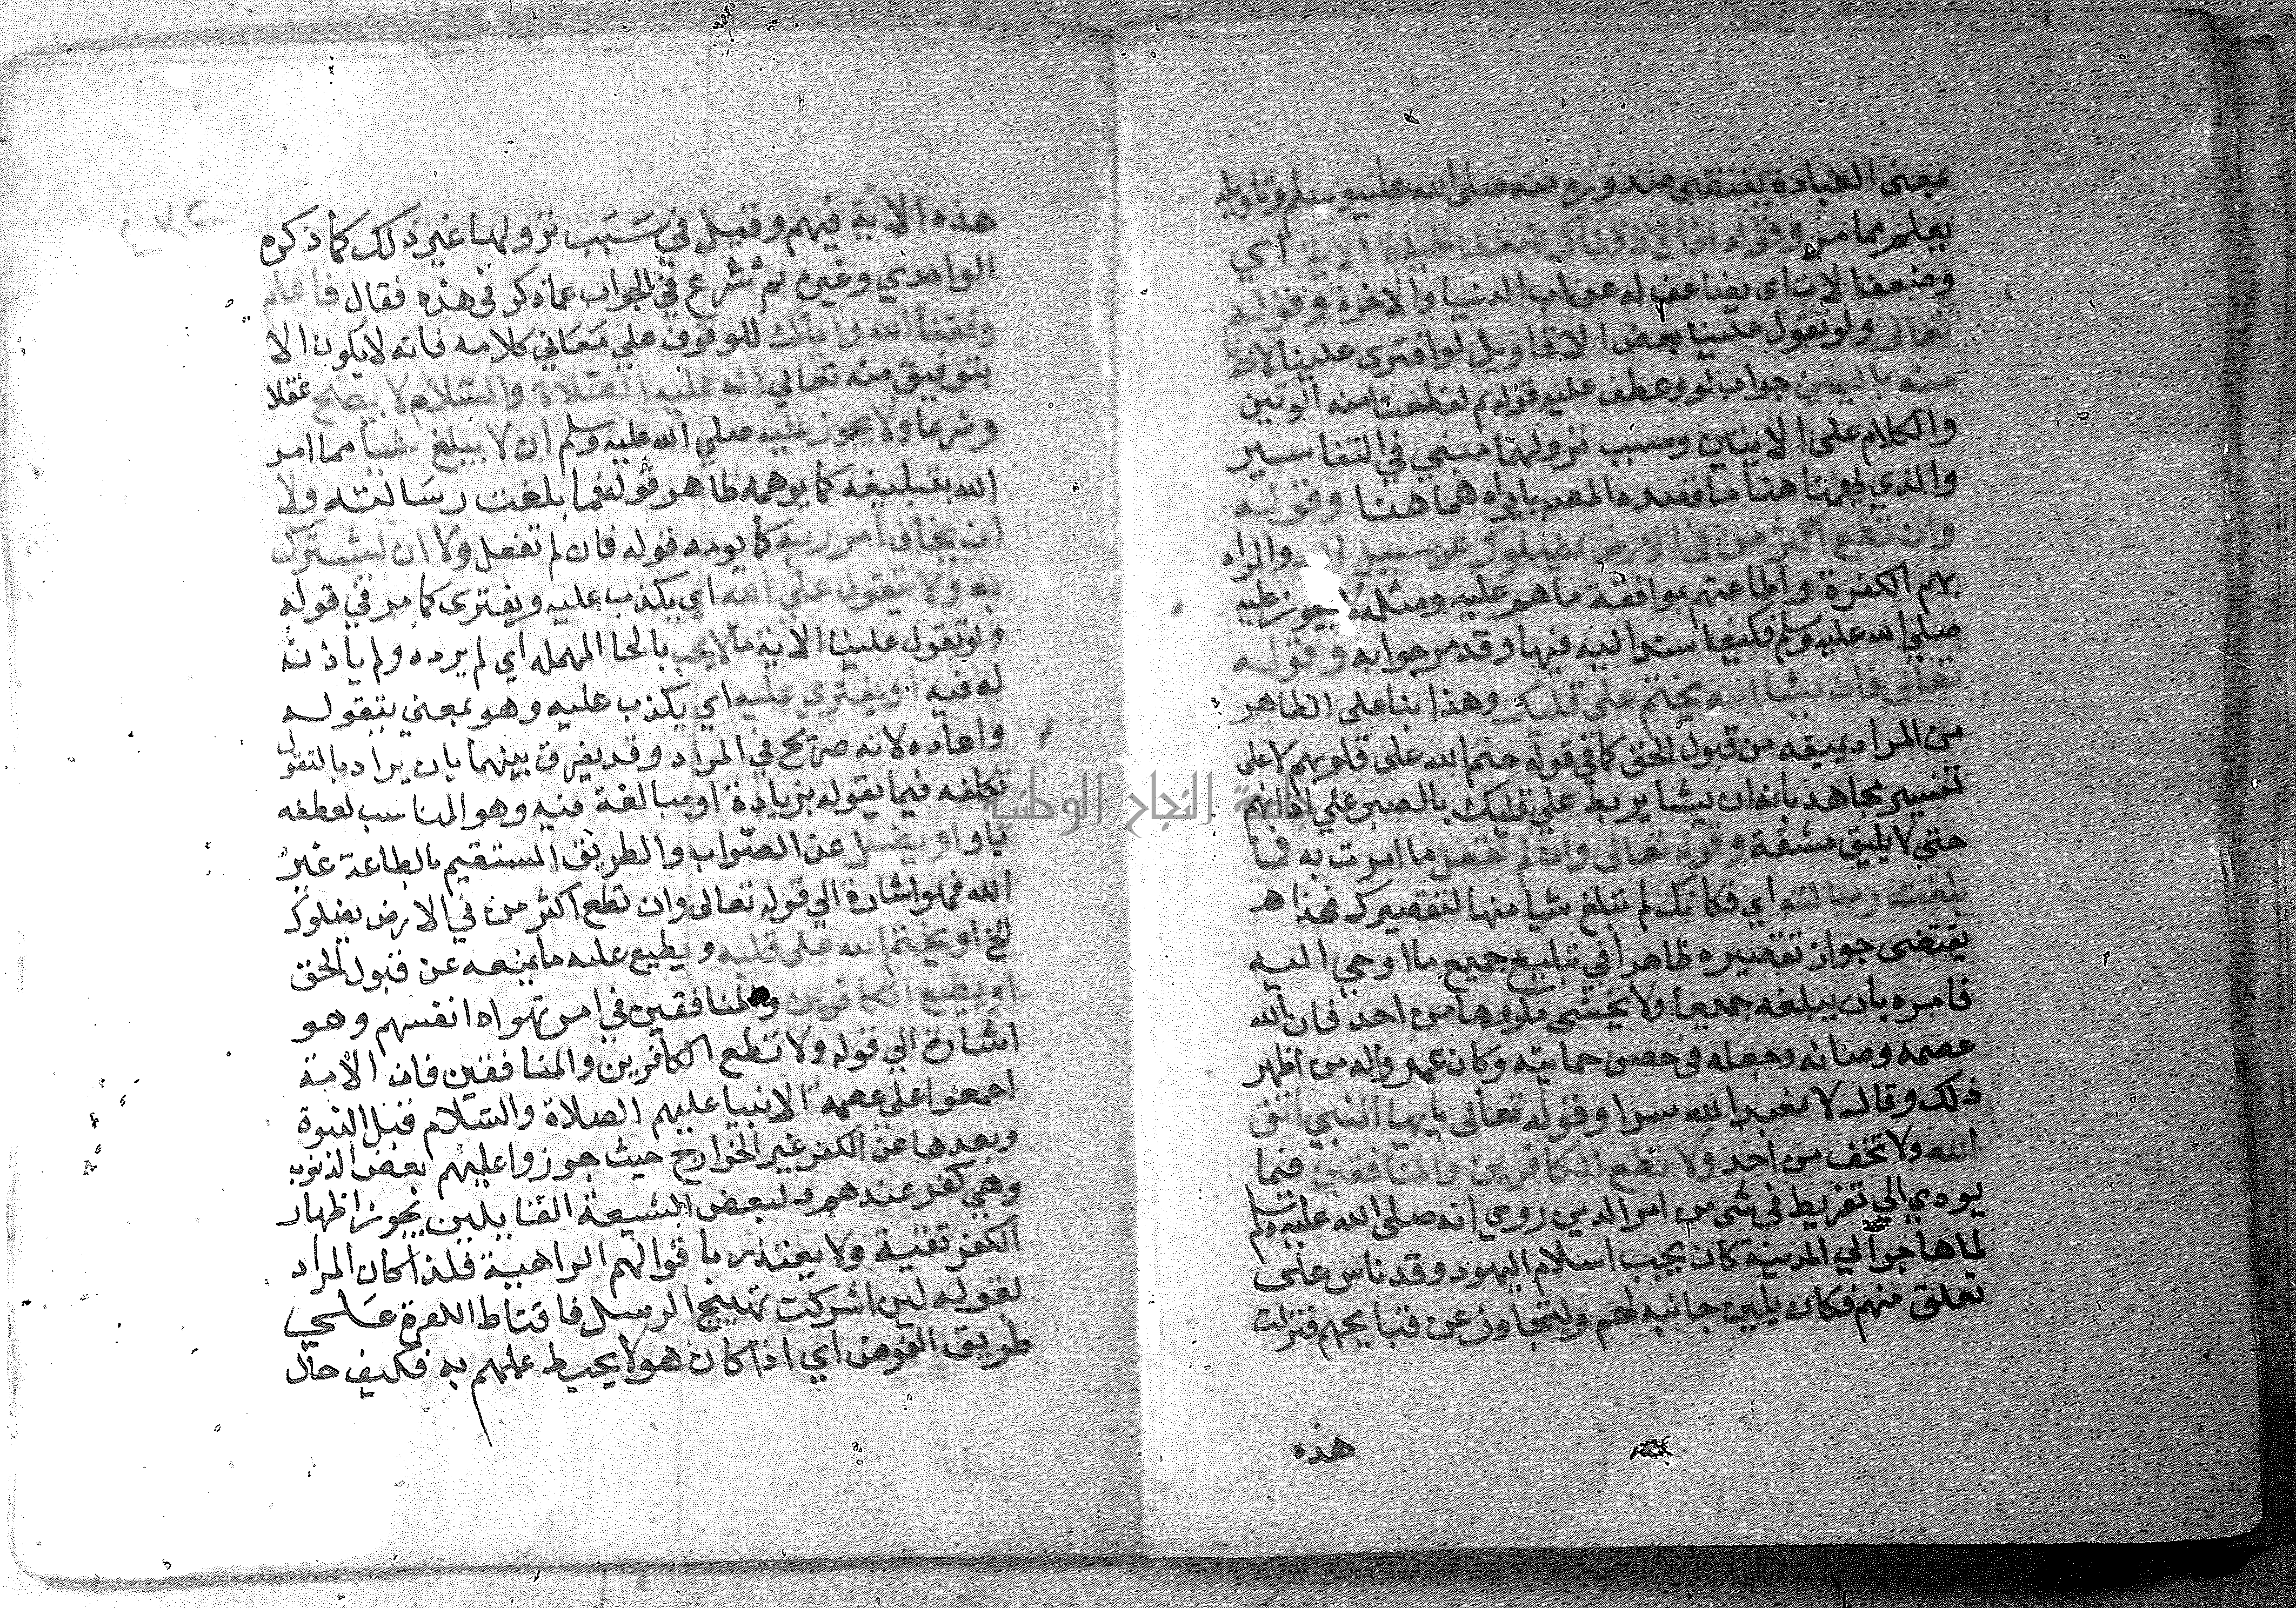 بمعنى العبادة يقتضى صدوره منه صلى الله عليه وسلم وتاويله
يعلم مما مر وقوله اذا لاذقناك ضعف الحيوة الاية اي
وضعف الات اى يضاعف له عذاب الدنيا والاخرة وقوله
تعالى ولو تقول علينا بعض الاقاويل لو افترى علينا لاخذنا
منه باليمين جواب لو وعطف عليه قوله ثم لقطعنا منه الوتين
والكلام على الايتين وسبب نزولهما مبني في التفاسير
والذي يهمنا هنا ما قصده المص بايراه هما هنا وقوله
وان تطع اكثر من فى الارض يضلوك عن سبيل الله والمراد
بهم الكفرة واطاعتهم بموافقة ما هم عليه ومثله لا يجوز عليه
صلى الله عليه وسلم فكيف اسند اليه فيها وقد مر جوابه وقوله
تعالى فان يشا الله يختم على قلبك وهذا بنا على الظاهر
من المراد يميقه من قبول الحق كما في قوله ختم الله على قلوبهم لا على
تفسير مجاهد بانه ان يشا يربط على قلبك بالصبر علي اذاهم
حتى لا يليق مشقة وقوله تعالى وان لم تفعل ما امرت به فما
بلغت رسالته اي فكانك لم تبلغ شيا منها لتقصيرك فهذا هر
يقتضى جواز تقصيره ظاهرا في تبليغ جميع ما اوحي اليه
فامره بان يبلغه جميعا ولا يخشى مكروها من احد فان الله
عصمه وصانه وجعله فى حصن حمايته وكان عمر والله من اظهر
ذلك وقال لا نعبد الله سرا وقوله تعالى يايها النبي اتق
الله ولا تخف من احد ولا تطع الكافرين والمنافقين فيما
يودي الي تفريط فى شى من امر الدين روي انه صلى الله عليه وسلم
لما هاجر الي المدينة كان يحب اسلام اليهود وقد ناس على
تعلق منهم فكان يلين جانبه لهم وليتجاوز عن قبايحهم فنزلت
هذه
هذه الاية فيهم وقيل في سبب نزولها غير ذلك كما ذكره
الواحدي وغيره ثم شرع في الجواب عما ذكر فى هذه فقال فاعلم
وفقنا الله واياك للوقوف علي معاني كلامه فانه لا يكون الا
بتوفيق منه تعالي انه عليه الصلاة والسلام لا يصلح عقلا
وشرعا ولا يجوز عليه صلى الله عليه وسلم ان لا يبلغ شيا مما امر
الله بتبليغه كما يوهمه ظاهر قوله فما بلغت رسالته ولا
ان يخاف امر ربه كما يومه قوله فان لم تفعل ولا ان يشرك
به ولا يتقول على الله اي يكذب عليه ويفترى كما مر في قوله
ولو تقول علينا الاية ما لا يحب بالحا المهمله اي لم يرده ولم ياذن
له فيه او يفتري عليه اي يكذب عليه وهو بمعني يتقوله
واعاده لانه صريح في المراد وقد يفرق بينهما بان يراد بالتقول
تكلفه فيما يقوله بزيادة او مبالغة فيه وهو المناسب لعطفه
باو او يضل عن الصواب والطريق المستقيم بالطاعة غير
الله فهو اشارة الي قوله تعالى وان تطع اكثر من في الارض يضلوك
الخ او يختم الله على قلبه ويطبع عليه ما يمنعه عن قبول الحق
او يطيع الكافرين والمنافقين في امر تهواه انفسهم وهو
اشارة الي قوله ولا تطع الكافرين والمنافقين فان الامة
اجمعوا على عصمة الانبيا عليهم الصلاة والسلام قبل النبوة
وبعدها عن الكفر غير الخوارج حيث جوزوا عليهم بعض الذنوب
وهي كفر عندهم ولبعض الشيعة القايلين بجوز اظهار
الكفر تقية ولا يعتذر باقوالهم الراهبة فلذا كان المراد
لقوله لين اشركت تهييج الرسل فاقتاط الكفرة على
طريق الفرض اي اذا كان هولا يحبط عملهم به فكيف حال
جامعة النجاح الوطنية